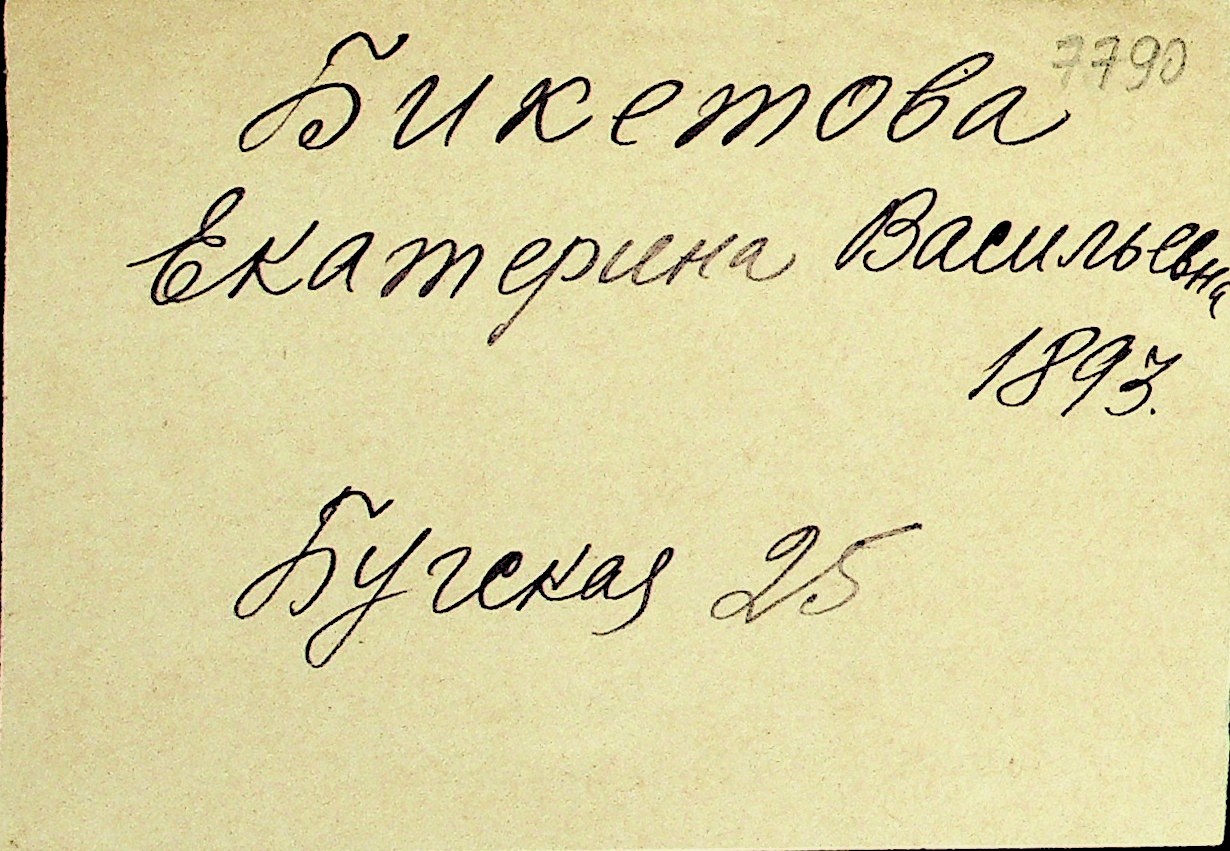 7790
Бикетова
Екатерина Васильевна
1893.
Бугская 25